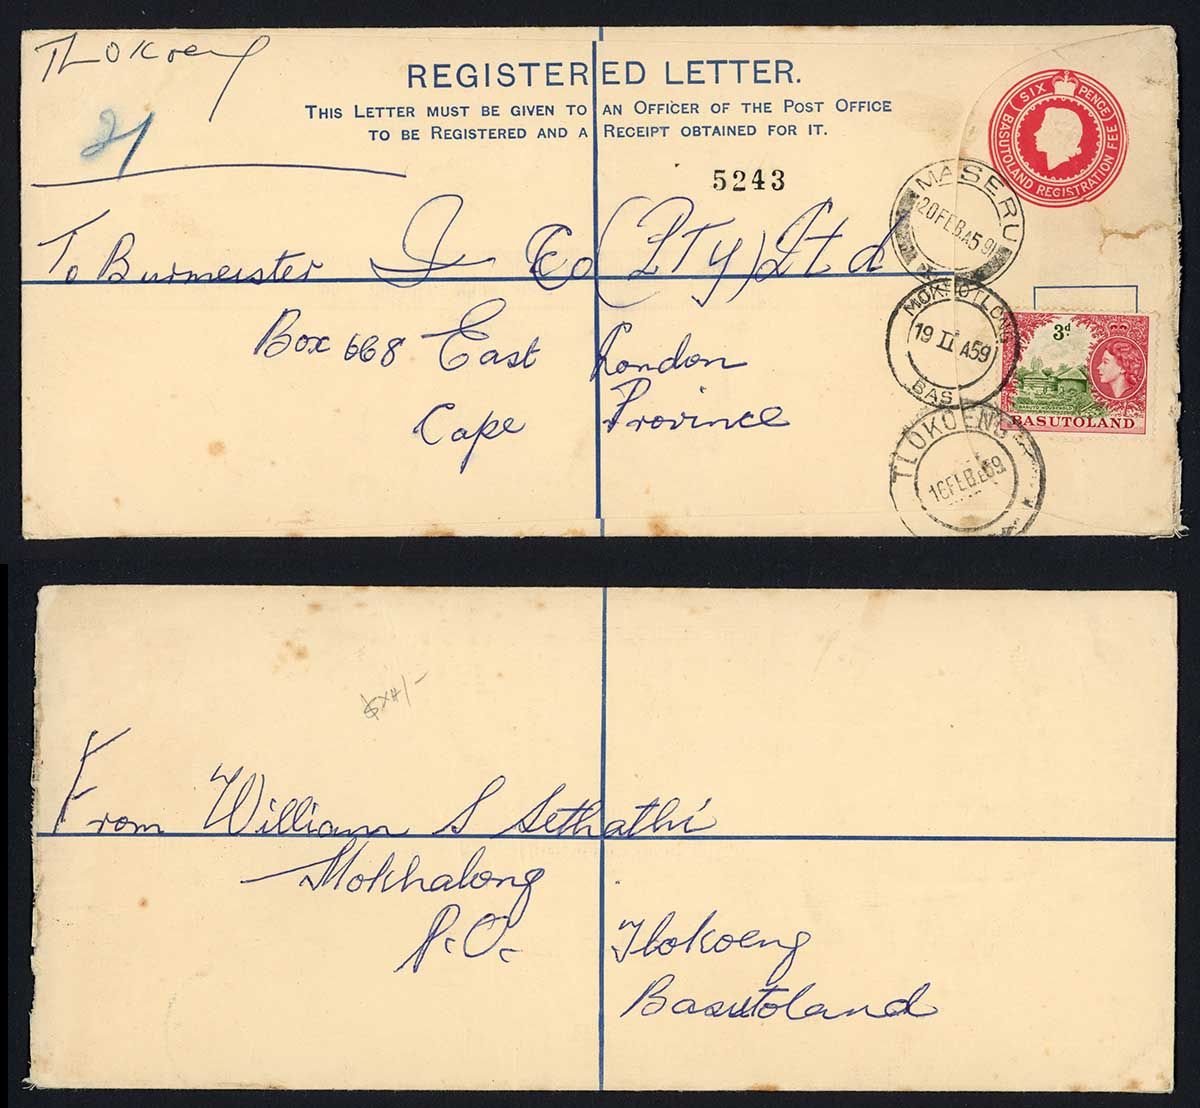 Tlokoeng
21
REGISTERED LETTER.
THIS LETTER MUST BE GIVEN TO AN OFFICER OF THE POST OFFICE
TO BE REGISTERED AND A RECEIPT OBTAINED FOR IT.
SIX PENCE
BASUTOLAND REGISTRATION FEE
5243
MASERU
20 FEB A 59
To Burmeister & Co (PTy) Ltd
MOKHOTLONG
19 II A59
BAS
3d
BASUTO HOUSEHOLD
BASUTOLAND
Box 668 East London
Cape Province
TLOKOENG
16 FEB 59
From William S Sethathi
Mokhalong
P.O. Tlokoeng
Basutoland